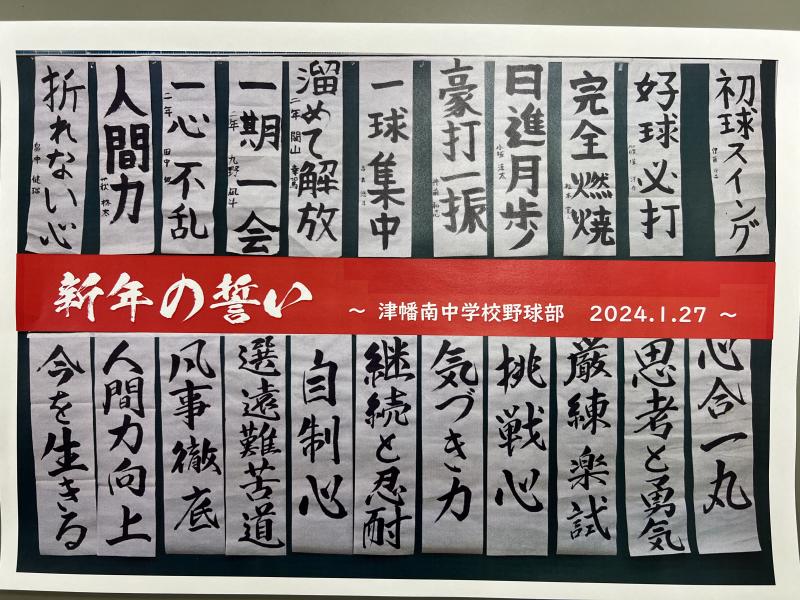 初球スイング
好球必打
完全燃焼
日進月歩
豪打一振
一球集中
溜めて解放
二年
一期一会
二年
一心不乱
二年
人間力
折れない心
新年の誓い
~ 津幡南中学校野球部 2024.1.27 ~
心合一丸
思考と勇気
厳練楽試
挑戦心
気づき力
継続と忍耐
自制心
選遠難苦道
凡事徹底
人間力向上
今を生きる